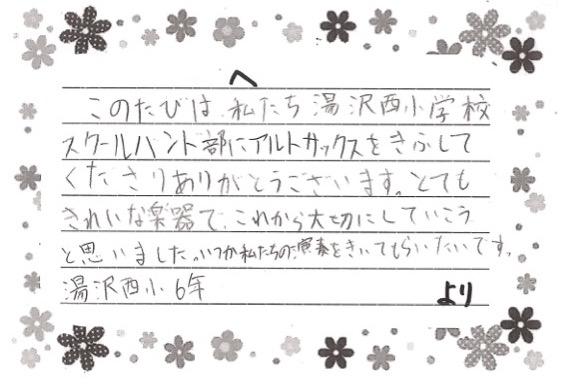 へ
このたびは、私たち湯沢西小学校
スクールバンド部にアルトサックスをきふして
くださりありがとうございます。とても
きれいな楽器で、これから大切にしていこう
と思いました。いつか私たちの演奏をきいてもらいたいです。
湯沢西小6年 より